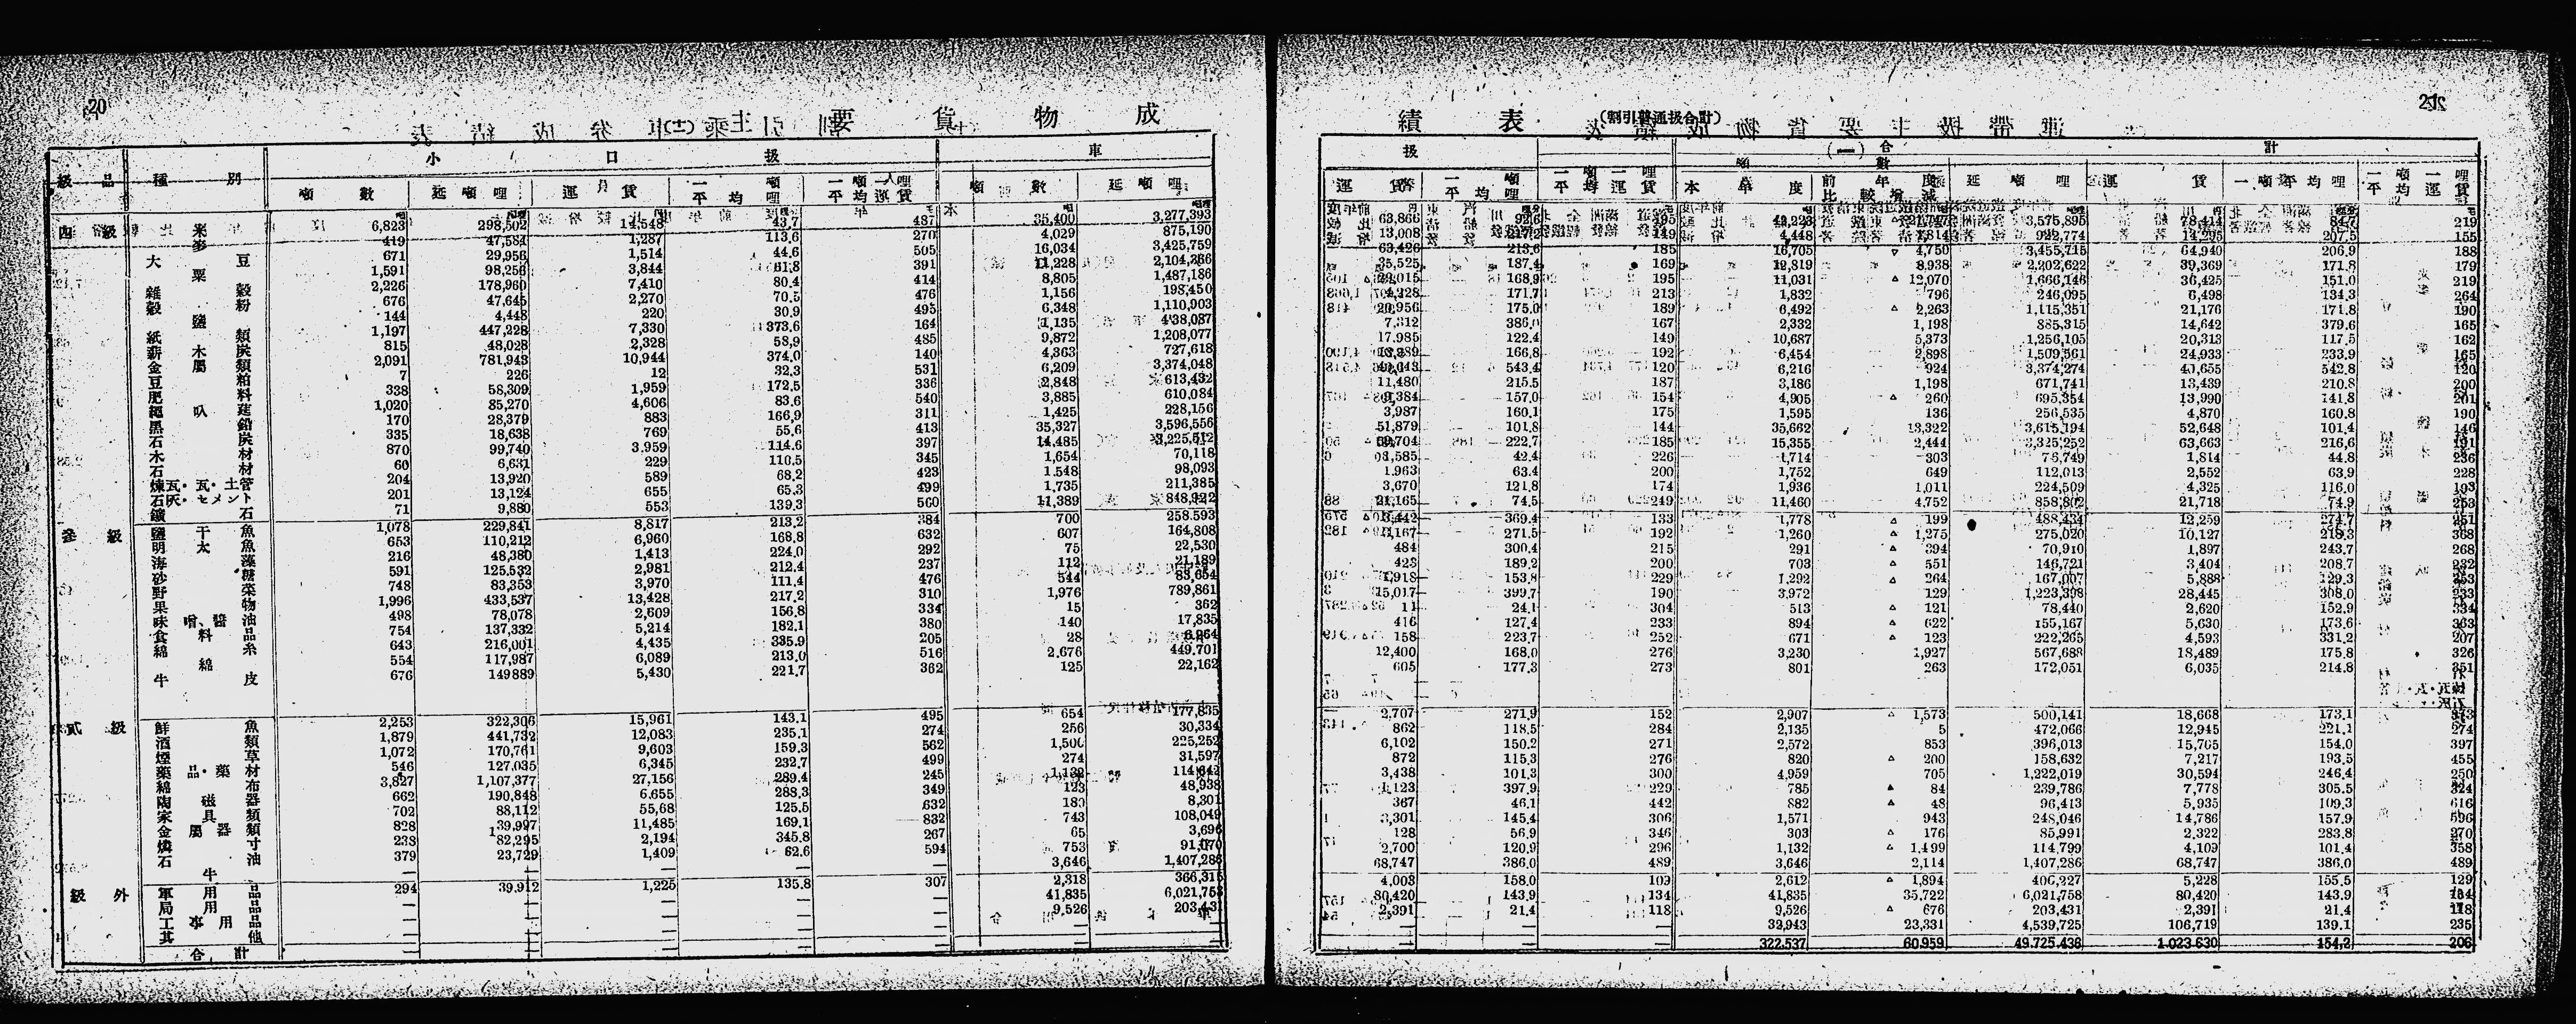 20
要 貨 物 成
級 品 種 別 小 口 扱 車
噸 數 延 噸 哩 運 賃 一 噸 平 均 哩 一 噸 一 哩 平 均 運 賃 噸 數 延 噸 哩
四 級 米 6,823 298,502 14,548 43.7 487 35,400 3,277,393
麥 419 47,584 1,287 113.6 270 4,029 875,190
大 豆 671 29,956 1,514 44.6 505 16,034 3,425,759
粟 1,591 98,256 3,844 61.8 391 11,228 2,104,366
雜 穀 2,226 178,960 7,410 80.4 414 8,805 1,487,186
穀 粉 676 47,645 2,270 70.5 476 1,156 198,450
鹽 144 4,448 220 30.9 495 6,348 1,110,903
紙 類 1,197 447,228 7,330 373.6 164 1,135 438,087
薪 木 炭 815 48,028 2,328 58.9 485 9,872 1,208,077
金 屬 類 2,091 781,943 10,944 374.0 140 4,363 727,618
豆 粕 7 226 12 32.3 531 6,209 3,374,048
肥 料 338 58,309 1,959 172.5 336 2,848 613,432
繩 叺 莚 1,020 85,270 4,606 83.6 540 3,885 610,084
黑 鉛 170 28,379 883 166.9 311 1,425 228,156
石 炭 335 18,638 769 55.6 413 35,327 3,596,556
木 材 870 99,740 3,959 114.6 397 14,485 3,225,512
石 材 60 6,631 229 110.5 345 1,654 70,118
煉瓦・瓦・土管 204 13,920 589 68.2 423 1,548 98,093
石灰・セメント 201 13,124 655 65.3 499 1,735 211,385
鑛 石 71 9,880 553 139.3 560 11,389 848,922
參 級 鹽 干 魚 1,078 229,841 8,817 213.2 384 700 258,593
明 太 魚 653 110,212 6,960 168.8 632 607 164,808
海 藻 216 48,380 1,413 224.0 292 75 22,530
砂 糖 591 125,532 2,981 212.4 237 112 21,189
野 菜 748 83,353 3,970 111.4 476 544 83,654
果 物 1,996 433,537 13,428 217.2 310 1,976 789,861
味 噌、醬 油 498 78,078 2,609 156.8 334 15 362
食 料 品 754 137,332 5,214 182.1 380 140 17,835
綿 糸 643 216,001 4,435 335.9 205 28 6,264
綿 554 117,987 6,089 213.0 516 2,676 449,701
牛 皮 676 149889 5,430 221.7 362 125 22,162
貳 級 鮮 魚 2,253 322,306 15,961 143.1 495 654 177,835
酒 類 1,879 441,732 12,083 235.1 274 256 30,334
煙 草 1,072 170,761 9,603 159.3 562 1,500 225,252
藥 品・藥 材 546 127,035 6,345 232.7 499 274 31,597
綿 布 3,827 1,107,377 27,156 289.4 245 1,132 114,642
陶 磁 器 662 190,848 6,655 288.3 349 123 48,938
家 具 類 702 88,112 55,68 125.5 632 180 8,301
金 屬 器 類 828 39,997 11,485 169.1 832 743 108,049
燐 寸 238 82,295 2,194 345.8 267 65 3,696
石 油 379 23,729 1,409 62.6 594 753 91,070
牛 — — — — — 3,646 1,407,286
級 外 軍 用 品 294 39,912 1,225 135.8 307 2,318 366,315
局 用 品 — — — — — 41,835 6,021,758
工 事 用 品 — — — — — 9,526 203,431
其 他 — — — — — — —
合 計 — — — — — — —
績 表 (割引普通扱合計)
扱 (一) 合 計
運 賃 一 噸 平 均 哩 一 噸 一 哩 平 均 運 賃 噸 數 本 年 度 前 年 度 比 較 增 減 延 噸 哩 運 賃 一 噸 平 均 哩 一 噸 一 哩 平 均 運 賃
63,866 92.6 195 42,223 3,575,895 78,414 84.7 219
13,008 217.2 149 4,448 922,774 14,295 207.5 155
63,426 213.6 185 16,705 4,750 3,455,715 64,940 206.9 188
35,525 187.4 169 12,819 8,938 2,202,622 39,369 171.8 179
29,015 168.9 195 11,031 △ 12,070 1,666,146 36,425 151.0 219
4,228 171.7 213 1,832 796 246,095 6,498 134.3 264
20,956 175.0 189 6,492 △ 2,263 1,115,351 21,176 171.8 190
7,312 386.0 167 2,332 1,198 885,315 14,642 379.6 165
17,985 122.4 149 10,687 5,373 1,256,105 20,313 117.5 162
166.8 192 6,454 2,898 1,509,561 24,933 233.9 165
543.4 120 6,216 924 3,374,274 542.8 120
11,480 215.5 187 3,186 1,198 671,741 13,439 210.8 200
9,384 157.0 154 4,905 △ 260 695,354 13,990 141.8 201
3,987 160.1 175 1,595 136 256,535 4,870 160.8 190
51,879 101.8 144 35,662 13,322 3,615,194 52,648 101.4 146
59,704 222.7 185 15,355 2,444 3,325,252 63,663 216.6 191
1,585 42.4 226 1,714 303 76,749 1,814 44.8 236
1,963 63.4 200 1,752 649 112,013 2,552 63.9 228
3,670 121.8 174 1,936 1,011 224,509 4,325 116.0 193
21,165 74.5 249 11,460 4,752 858,802 21,718 74.9 253
3,442 369.4 133 1,778 △ 199 488,434 12,259 274.7 251
3,167 271.5 192 1,260 △ 1,275 275,020 10,127 218.3 368
484 300.4 215 291 △ 394 70,910 1,897 243.7 268
423 189.2 200 703 △ 551 146,721 3,404 208.7 232
1,918 153.8 229 1,292 △ 264 167,007 5,888 129.3 353
15,017 399.7 190 3,972 129 1,223,398 28,445 308.0 233
11 24.1 304 513 △ 121 78,440 2,620 152.9 334
416 127.4 233 894 △ 622 155,167 5,630 173.6 363
158 223.7 252 671 △ 123 222,265 4,593 331.2 207
12,400 168.0 276 3,230 1,927 567,688 18,489 175.8 326
605 177.3 273 801 263 172,051 6,035 214.8 351
2,707 271.9 152 2,907 △ 1,573 500,141 18,668 173.1 373
862 118.5 284 2,135 5 472,066 12,945 221.1 274
6,102 150.2 271 2,572 853 396,013 15,705 154.0 397
872 115.3 276 820 △ 200 158,632 7,217 193.5 455
3,438 101.3 300 4,959 705 1,222,019 30,594 246.4 250
1,123 397.9 229 785 △ 84 239,786 7,778 305.5 324
367 46.1 442 882 △ 48 96,413 5,935 109.3 616
3,301 145.4 306 1,571 943 248,046 14,786 157.9 596
128 56.9 346 303 △ 176 85,991 2,322 283.8 270
2,700 120.9 296 1,132 △ 1,499 114,799 4,109 101.4 358
68,747 386.0 489 3,646 2,114 1,407,286 68,747 386.0 489
4,003 158.0 109 2,612 △ 1,894 406,227 5,228 155.5 129
80,420 143.9 134 41,835 35,722 6,021,758 80,420 143.9 134
2,391 21.4 118 9,526 △ 676 203,431 2,391 21.4 118
— — — 32,943 23,331 4,539,725 106,719 139.1 235
— — — 322,537 60,959 49,725,436 1,023,630 154.2 206